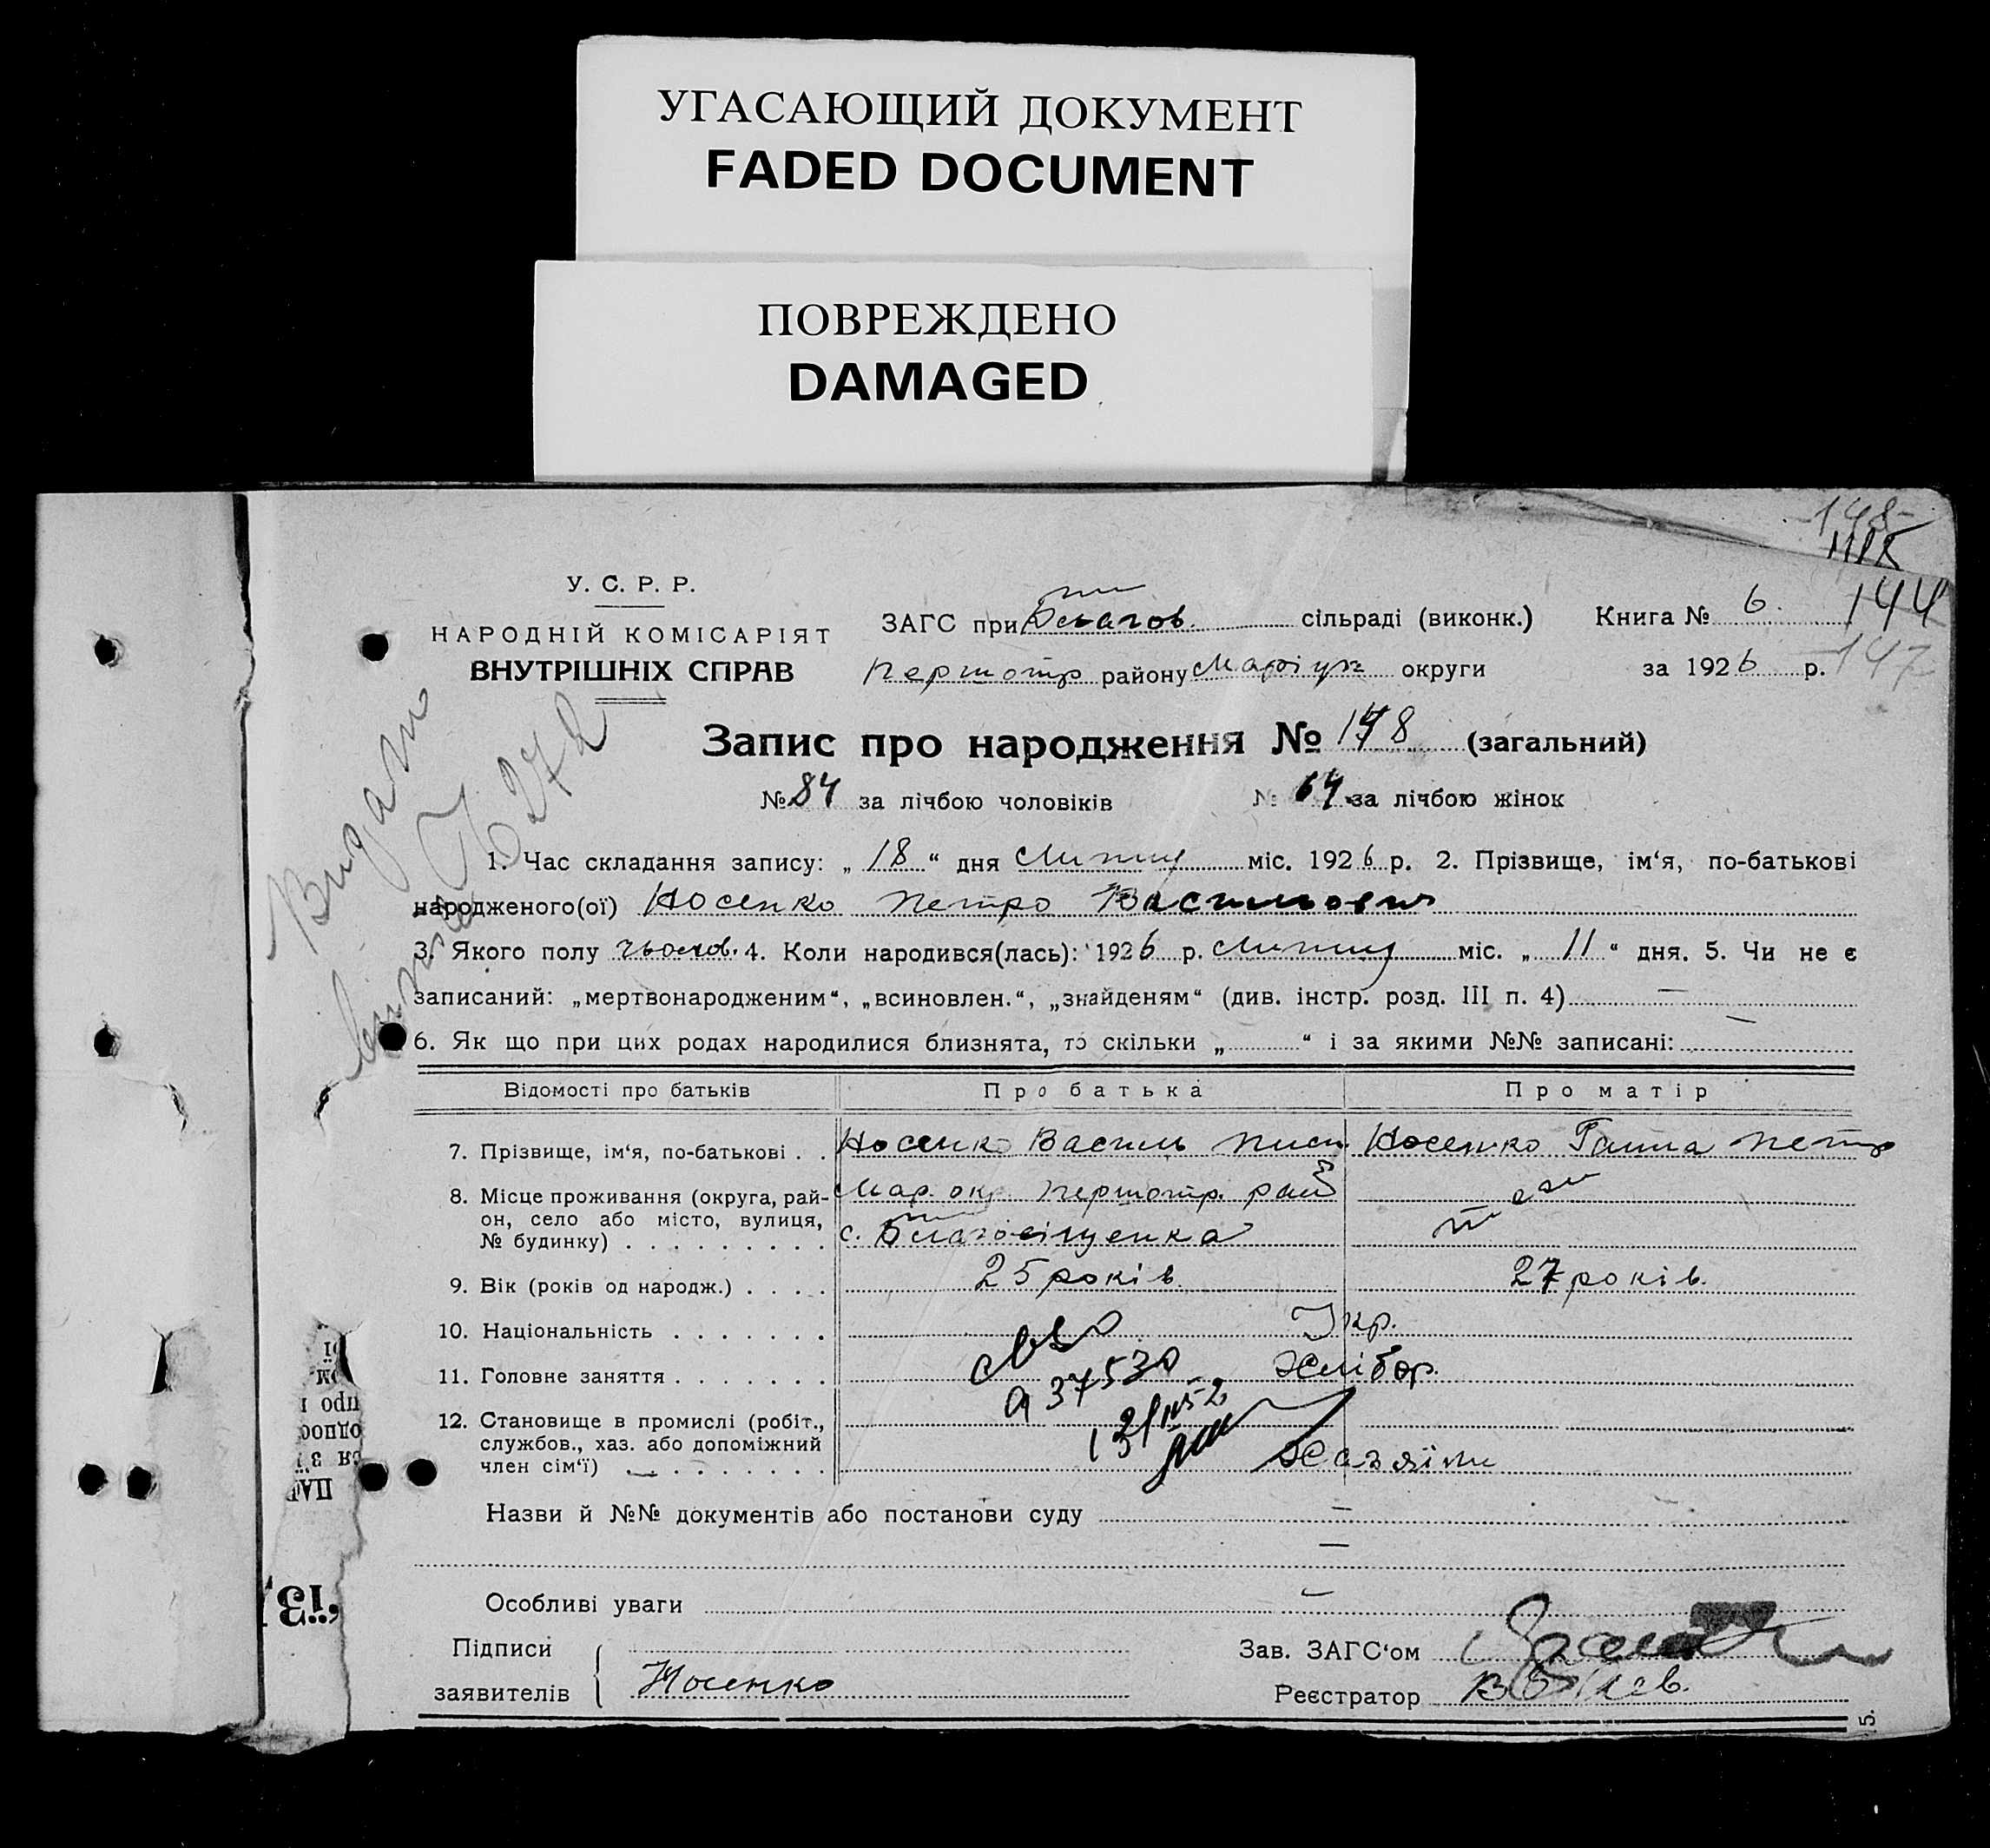 УГАСАЮЩИЙ ДОКУМЕНТ
FADED DOCUMENT
ПОВРЕЖДЕНО
DAMAGED
148
144
147
У. С. Р. Р.
НАРОДНІЙ КОМІСАРІЯТ
ВНУТРІШНІХ СПРАВ
ЗАГС при Благов. сільраді (виконк.) Книга № 6.
Першотр району Маріуп округи за 1926 р.
Запис про народження № 148 (загальний)
№ 84 за лічбою чоловіків № 64 за лічбою жінок
1. Час складання запису: „ 18 “ дня Липця міс. 1926 р. 2. Прізвище, ім‘я, по-батькові
народженого(ої) Носенко Петро Васильович
3. Якого полу чолов. 4. Коли народився(лась): 1926 р. Липця міс. „ 11 “ дня. 5. Чи не є
записаний: „мертвонародженим“, „всиновлен.“, „знайденям“ (див. інстр. розд. III п. 4) —
6. Як що при цих родах народилися близнята, то скільки „ “ і за якими №№ записані: —
Відомості про батьків Про батька Про матір
7. Прізвище, ім‘я, по-батькові . . Носенко Василь Носенко Ганна Петр
8. Місце проживання (округа, рай- Мар. окр. Першотр. рай
он, село або місто, вулиця, с. Благовіщенка
№ будинку) . . . . . . . . .
9. Вік (років од народж.) . . . . 25 років. 27 років.
10. Національність . . . . . . . Укр.
11. Головне заняття . . . . . . . Хлібор.
37530
12. Становище в промислі (робіт.,
службов., хаз. або допоміжний
член сім‘ї) . . . . . . . Хазяїни
Назви й №№ документів або постанови суду —
—
Особливі уваги —
Підписи
заявителів Носенко
Зав. ЗАГС‘ом
Реєстратор
5.
Видано
272